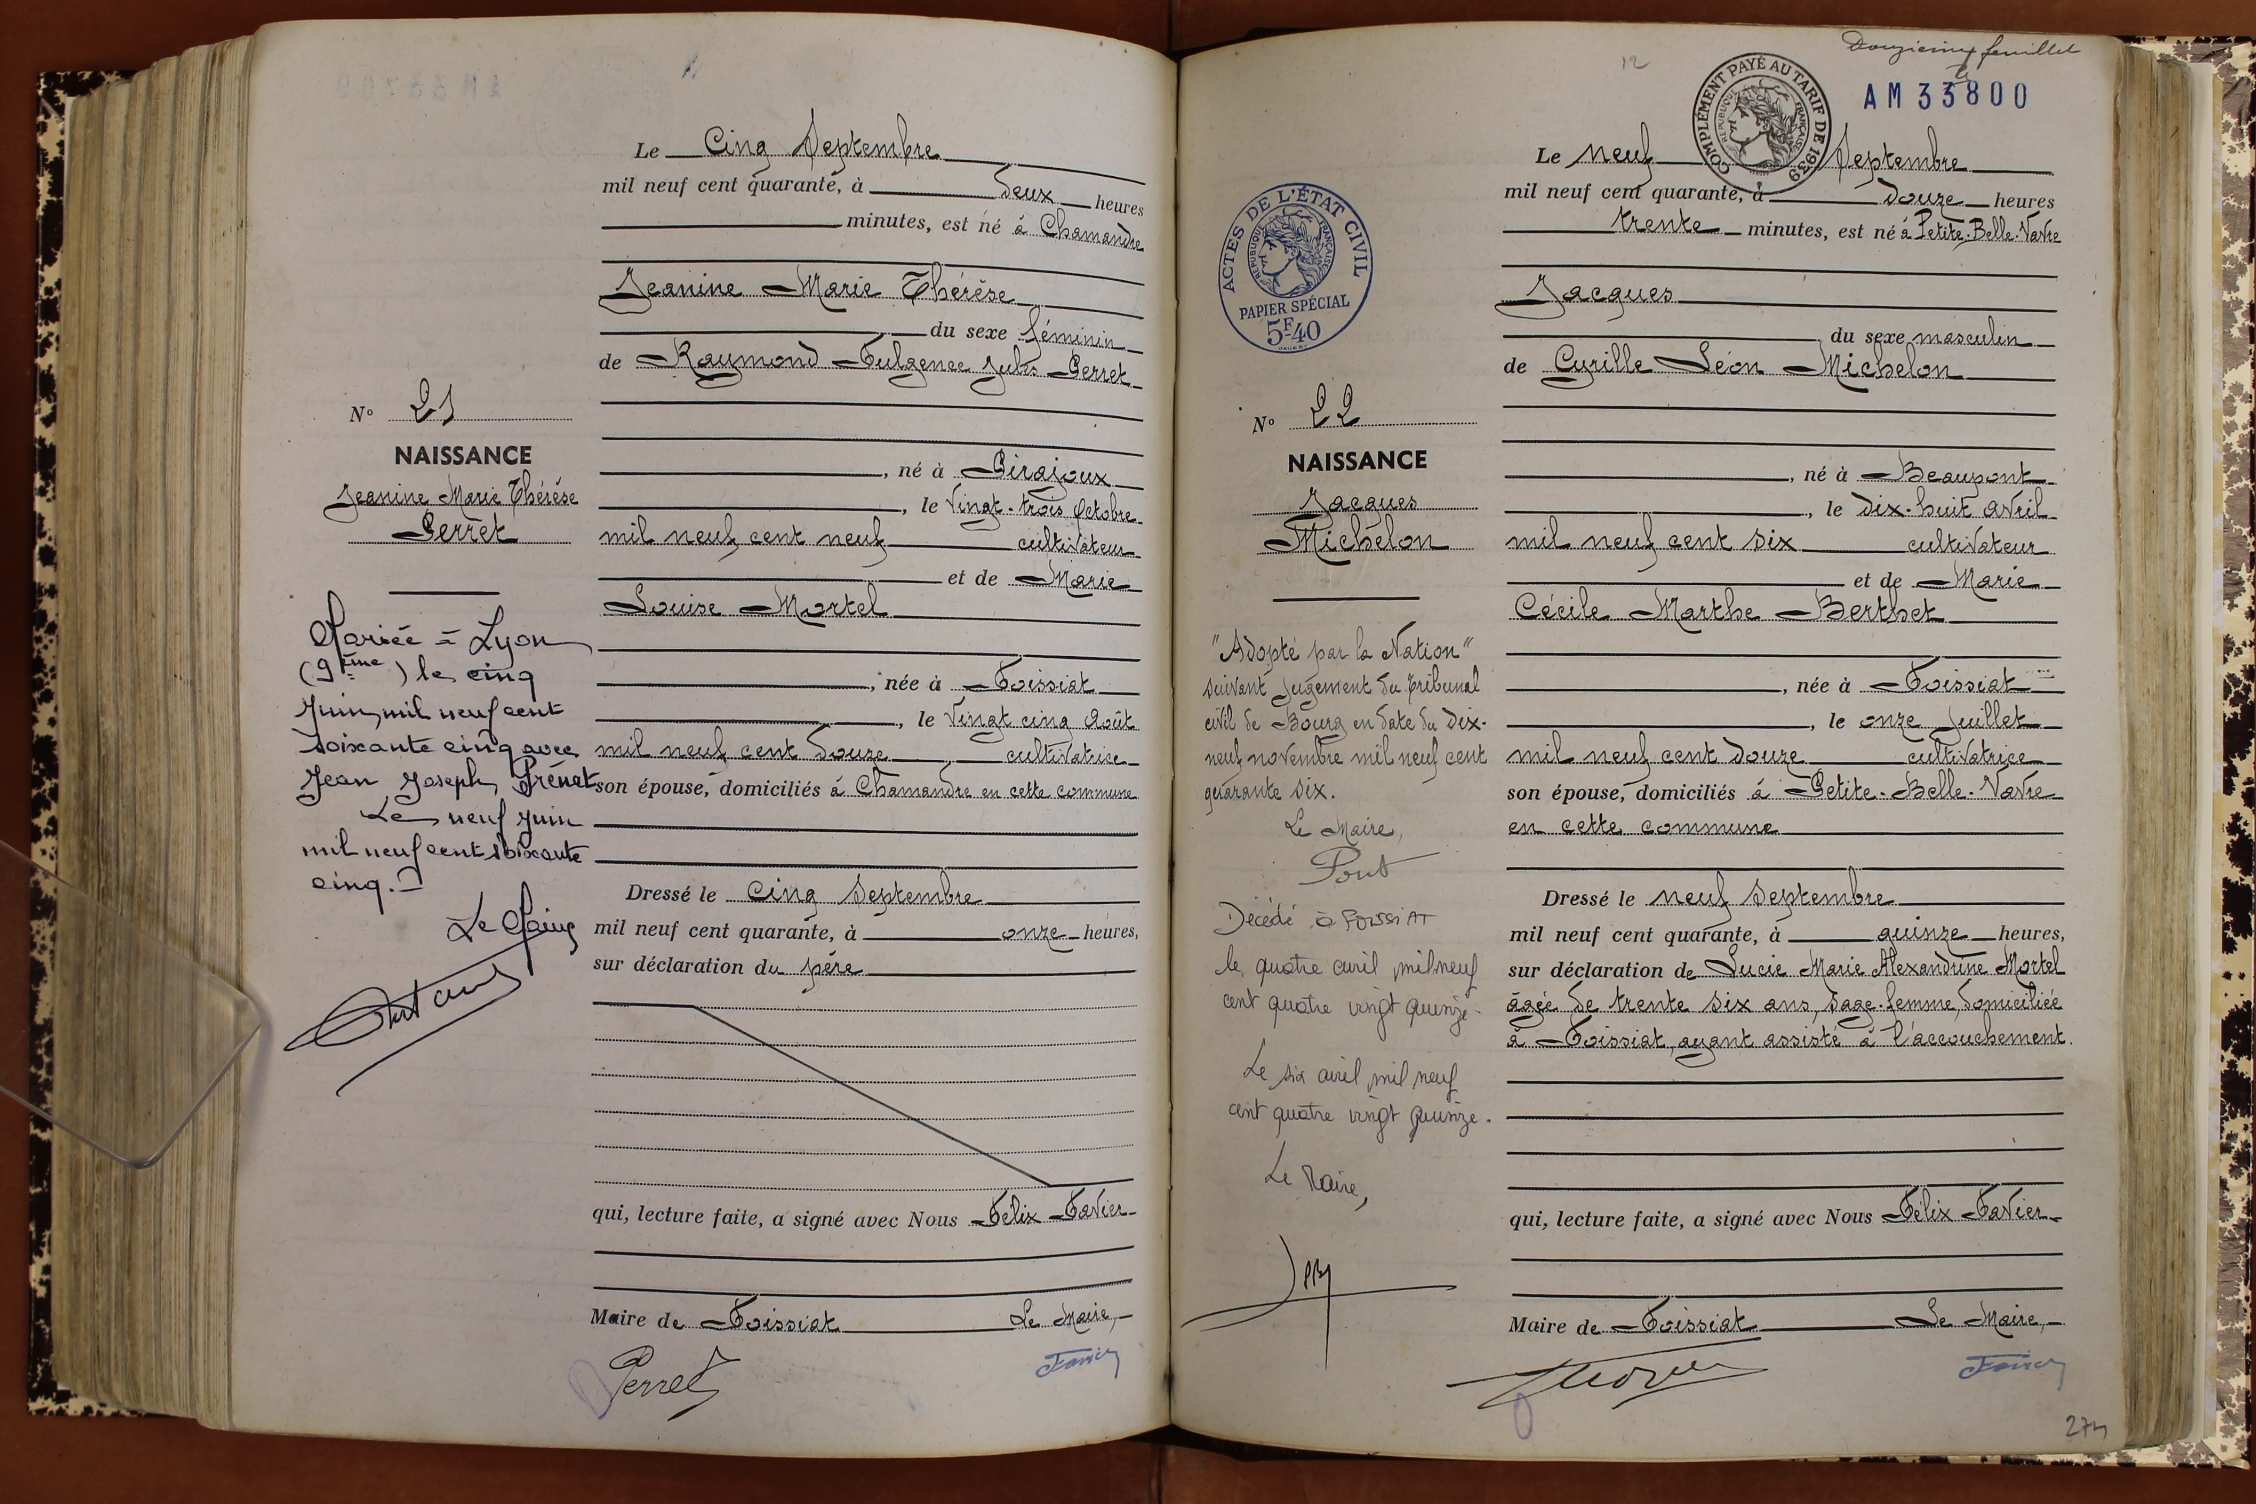 Le Cinq Septembre
mil neuf cent quarante, à deux heures
minutes, est né à Chamandre
Jeanine Marie Thérèse
du sexe féminin
de Raymond Fulgence Jules Perret
N° 21
NAISSANCE
Jeanine Marie Thérèse
Perret
, né à Pirajoux
, le Vingt-trois Octobre
mil neuf cent neuf cultivateur
et de Marie
Louise Mortel
, née à Foissiat
, le Vingt cinq Août
mil neuf cent douze cultivatrice
son épouse, domiciliés à Chamandre en cette commune
Mariée à Lyon
(9ème) le cinq
Juin mil neuf cent
soixante cinq avec
Jean Joseph Prénat
Le neuf Juin
mil neuf cent soixante
cinq.
Le Maire
Dressé le cinq Septembre
mil neuf cent quarante, à onze heures,
sur déclaration du père
qui, lecture faite, a signé avec Nous Félix Favier
Maire de Foissiat Le Maire,
Perret
Favier
Douzième feuillet
12
COMPLÉMENT PAYÉ AU TARIF DE 1939
RÉPUBLIQUE FRANÇAISE
AM 33800
ACTES DE L'ÉTAT CIVIL
RÉPUBLIQUE FRANÇAISE
PAPIER SPÉCIAL
5F40
Le neuf Septembre
mil neuf cent quarante, à douze heures
trente minutes, est né à Petite-Belle-Vavre
Jacques
du sexe masculin
de Cyrille Léon Michelon
N° 22
NAISSANCE
Jacques
Michelon
, né à Beaupont
, le dix-huit avril
mil neuf cent six cultivateur
et de Marie
Cécile Marthe Berthet
, née à Foissiat
, le onze Juillet
mil neuf cent douze cultivatrice
son épouse, domiciliés à Petite-Belle-Vavre
en cette commune
"Adopté par la Nation"
suivant Jugement du Tribunal
civil de Bourg en date du dix-
neuf novembre mil neuf cent
quarante six.
Le Maire,
Pont
Décédé à FOISSIAT
le quatre avril mil neuf
cent quatre vingt quinze.
Le six avril mil neuf
cent quatre vingt quinze.
Le Maire,
Dressé le neuf Septembre
mil neuf cent quarante, à quinze heures,
sur déclaration de Lucie Marie Alexandrine Mortel
âgée de trente six ans, sage-femme, domiciliée
à Foissiat, ayant assisté à l'accouchement.
qui, lecture faite, a signé avec Nous Félix Favier
Maire de Foissiat Le Maire,
Favier
274